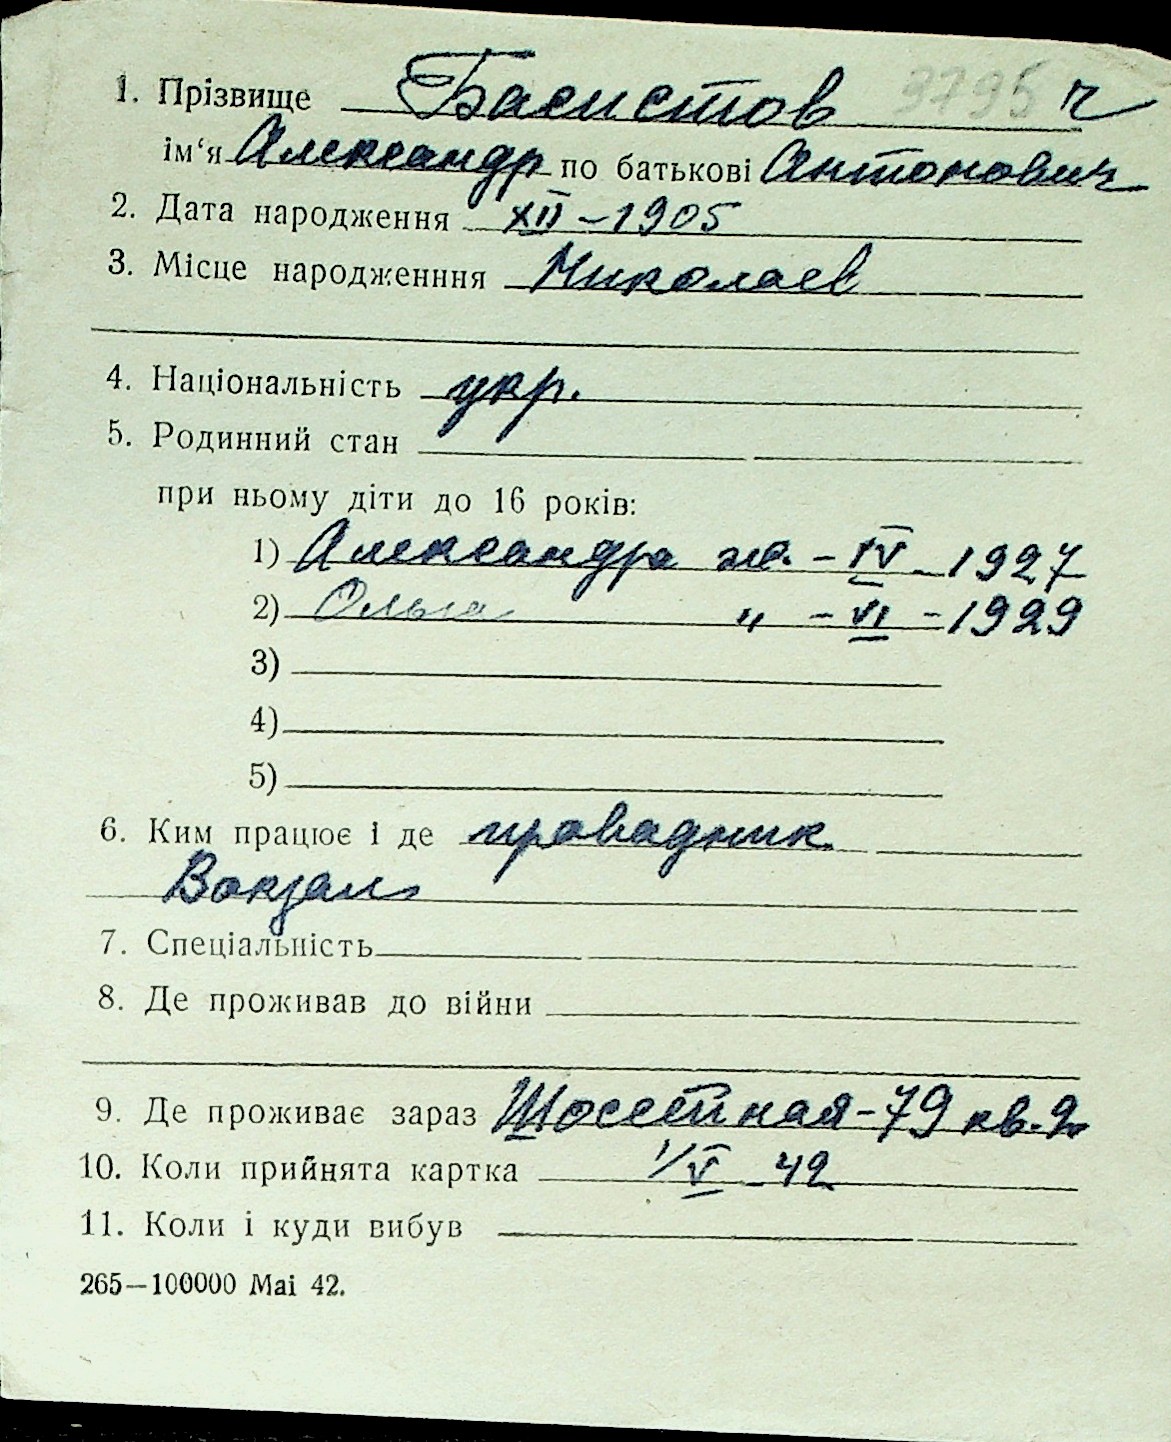 1. Прізвище Басистов 9795 ч
ім‘я Александр по батькові Антонович
2. Дата народження XII – 1905
3. Місце народженння Николаев
4. Національність укр.
5. Родинний стан
при ньому діти до 16 років:
1) Александра ж. – IV – 1927
2) Ольга " – VI – 1929
3)
4)
5)
6. Ким працює і де провадник
Вокзал
7. Спеціальність
8. Де проживав до війни
9. Де проживає зараз Шоссейная – 79 кв. 2
10. Коли прийнята картка 1/V – 42
11. Коли і куди вибув
265—100000 Mai 42.